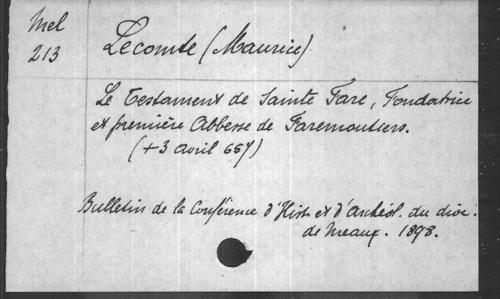 Mel
213
Lecomte (Maurice)
Le Testament de Sainte Fare, Fondatrice
et première Abbesse de Faremoutiers.
(+3 avril 657)
Bulletin de la Conférence d'Hist. et d'Archéol. du dioc.
de Meaux. 1898.